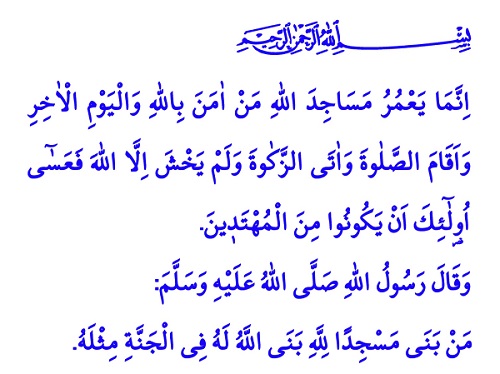 بِسْمِ اللهِ الرَّحْمٰنِ الرَّحِيمِ
اِنَّمَا يَعْمُرُ مَسَاجِدَ اللهِ مَنْ اٰمَنَ بِاللهِ وَالْيَوْمِ الْاٰخِرِ
وَاَقَامَ الصَّلٰوةَ وَاٰتَى الزَّكٰوةَ وَلَمْ يَخْشَ اِلَّا اللهَ فَعَسٰٓى
اُو۬لٰٓئِكَ اَنْ يَكُونُوا مِنَ الْمُهْتَد۪ينَ.
وَقَالَ رَسُولُ اللهِ صَلَّى اللهُ عَلَيْهِ وَسَلَّمَ:
مَنْ بَنَى مَسْجِدًا لِلَّهِ بَنَى اللَّهُ لَهُ فِى الْجَنَّةِ مِثْلَهُ.